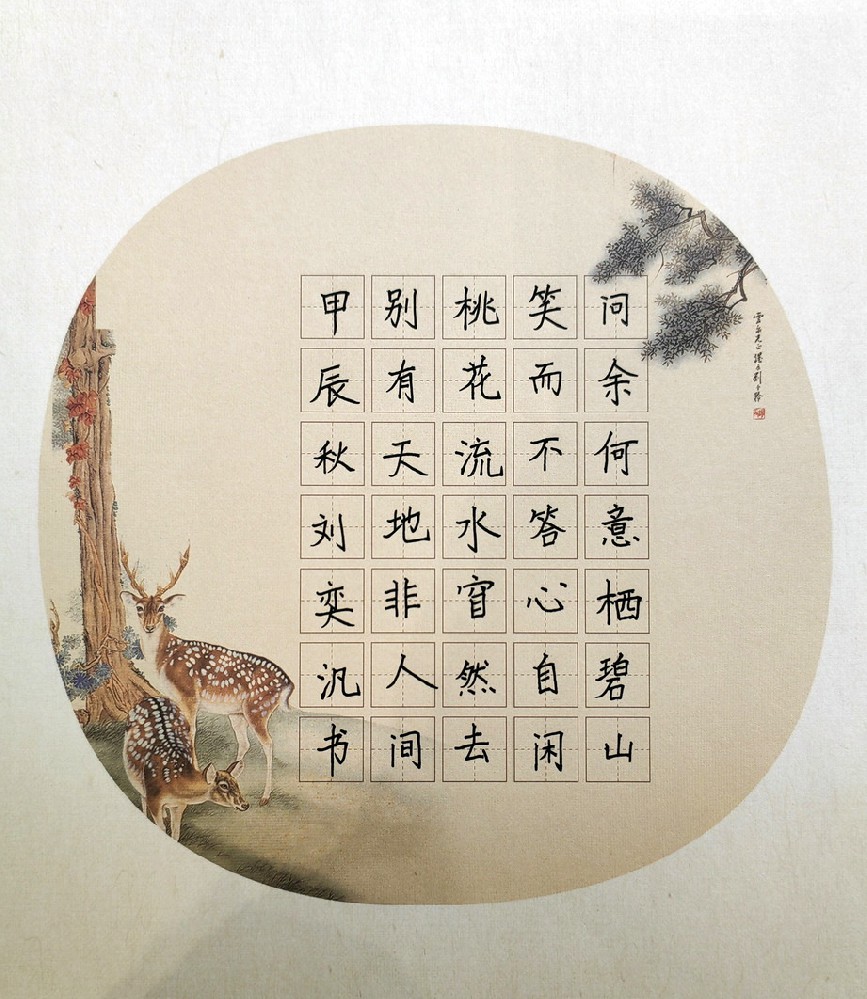 问余何意栖碧山
笑而不答心自闲
桃花流水窅然去
别有天地非人间
甲辰秋刘奕汎书